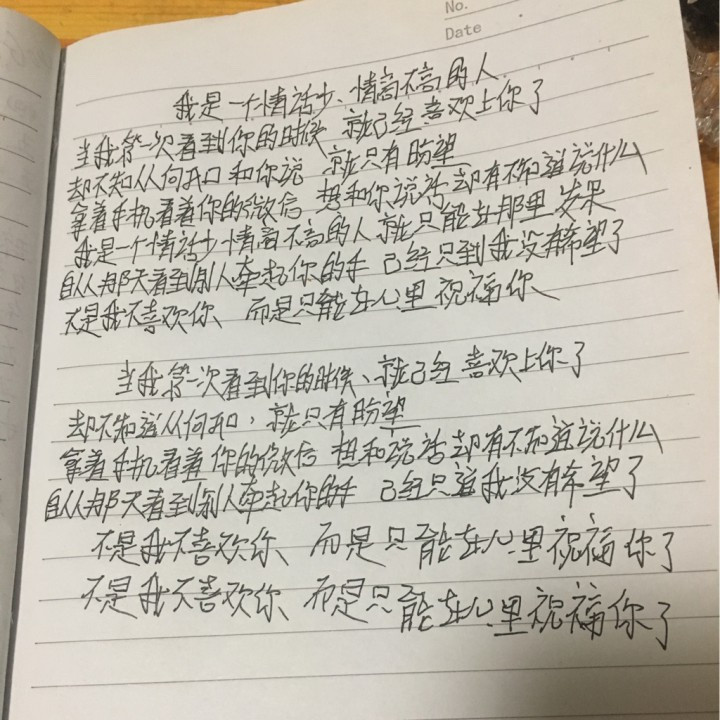 No.
Date
我是一个情话少、情商不高的人
当我第一次看到你的时候 就已经喜欢上你了
却不知从何开口和你说 就只有盼望
拿着手机看着你的微信 想和你说话却有不知道说什么
我是一个情话少情商不高的人就只能在那里发呆
自从那天看到别人牵起你的手 已经只到我没有希望了
不是我不喜欢你、而是只能在心里祝福你、
当我第一次看到你的时候、就已经喜欢上你了
却不知道从何开口，就只有盼望
拿着手机看着你的微信 想和说话却有不知道说什么
自从那天看到别人牵起你的手 已经只道我没有希望了
不是我不喜欢你、而是只能在心里祝福你了
不是我不喜欢你、而是只能在心里祝福你了